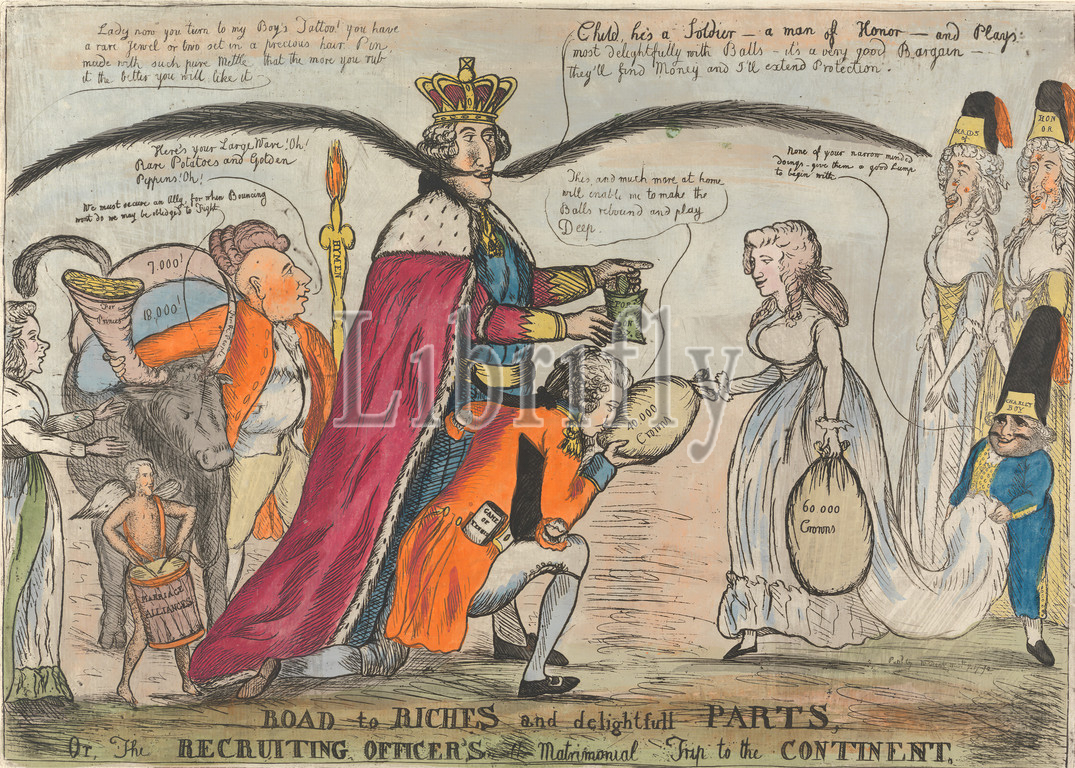 Lady now you turn to my Boy's Tattoo! you have
a rare Jewel or two set in a precious hair Pin
made with such pure Mettle that the more you rub
it the better you will like it
Child, he's a Soldier — a man of Honor — and Plays
most delightfully with Balls — it's a very good Bargain —
they'll find Money and I'll extend Protection.
Here's your Large Ware! Oh!
Rare Potatoes and Golden
Pippens! Oh!
We must secure an Ally, for when Bouncing
wont do we may be obliged to Fight
This and much more at home
will enable me to make the
Balls rebound and play
Deep.
None of your narrow minded
doings - give them a good Lump
to begin with
MAIDS
of
HON
OR
7,000!
18,000!
For
HYMEN
FOR
000
Crowns
60 000
Crowns
CHARLEY
BOY
GAME
OF
TENNIS
MARRIAGE
ALLIANCES
Librifly
ROAD to RICHES and delightfull PARTS,
Or, The RECRUITING OFFICER'S Matrimonial Trip to the CONTINENT.